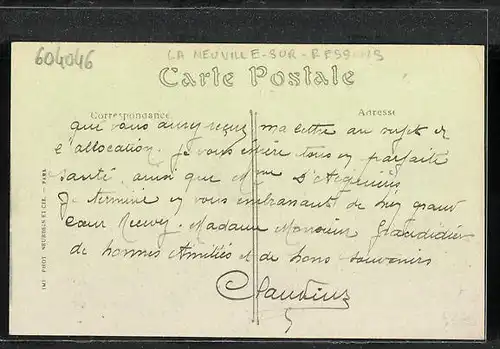 604046
LA NEUVILLE-SUR-RESSONS
Carte Postale
Correspondance
Adresse
que vous aurez reçu ma lettre au sujet de
l'allocation. Je vous espère tous en parfaite
santé, ainsi que Mme D'Argenius
Je termine en vous embrassant de grand
Cœur Recevez Madame Monsieur Grandidier
de bonnes Amitiés et de bons souvenirs
IMP. PHOT. NEURDEIN ET CIE. - PARIS